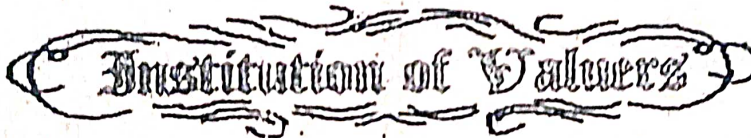 Institution of Valuers